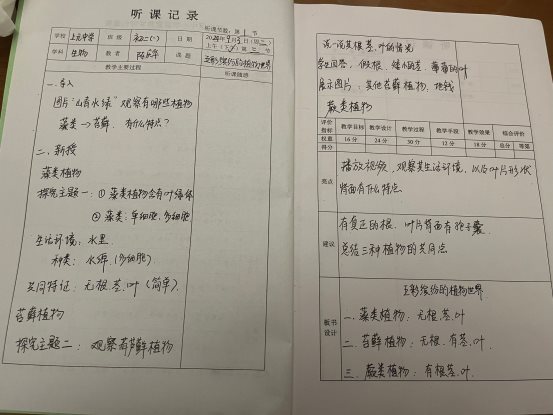 听课记录
听课节数：第 1 节
学校 上元中学 班级 初二(1) 日期 2024年9月5日(周二)
上午(下午)第三节
学科 生物 教者 课题 五彩缤纷的植物世界
教学主要过程 听课随感
一. 导入
图片"山青水绿" 观察有哪些植物
藻类→苔藓. 有什么特点?
二. 新授
藻类植物
探究主题一: ① 藻类植物含有叶绿体
② 藻类: 单细胞, 多细胞
生活环境: 水里
种类: 水绵 (多细胞)
共同特征: 无根.茎.叶 (简单).
苔藓植物
探究主题二: 观察葫芦藓植物
说一说其根.茎.叶的情况
学生回答, 假根, 矮小的茎, 薄薄的叶
展示图片: 其他苔藓植物. 地钱
蕨类植物
评价指标 教学目标 教学设计 教学过程 教学手段 教学效果 综合评价
权重 16分 24分 30分 12分 18分 总分 等第
得分
亮点
播放视频, 观察其生活环境, 以及叶片形状
背面有什么特点.
建议
有真正的根. 叶片背面有孢子囊
总结三种植物的共同点
板书设计
五彩缤纷的植物世界
一. 藻类植物: 无根.茎.叶
二. 苔藓植物: 无根. 有茎.叶
三. 蕨类植物: 有根.茎.叶